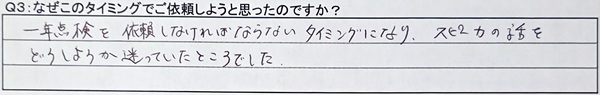 Q3:なぜこのタイミングでご依頼しようと思ったのですか?
一年点検を依頼しなければならないタイミングになり、スピーカの話を
どうしようか迷っていたところでした。